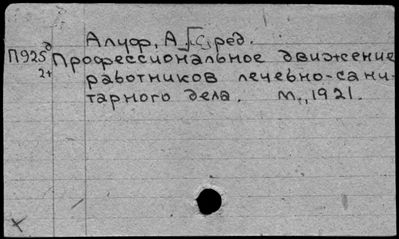 Алуф, А. [С.] ред.
П925д Профессиональное движение
2+ работников лечебно-сани-
тарного дела. М., 1921.